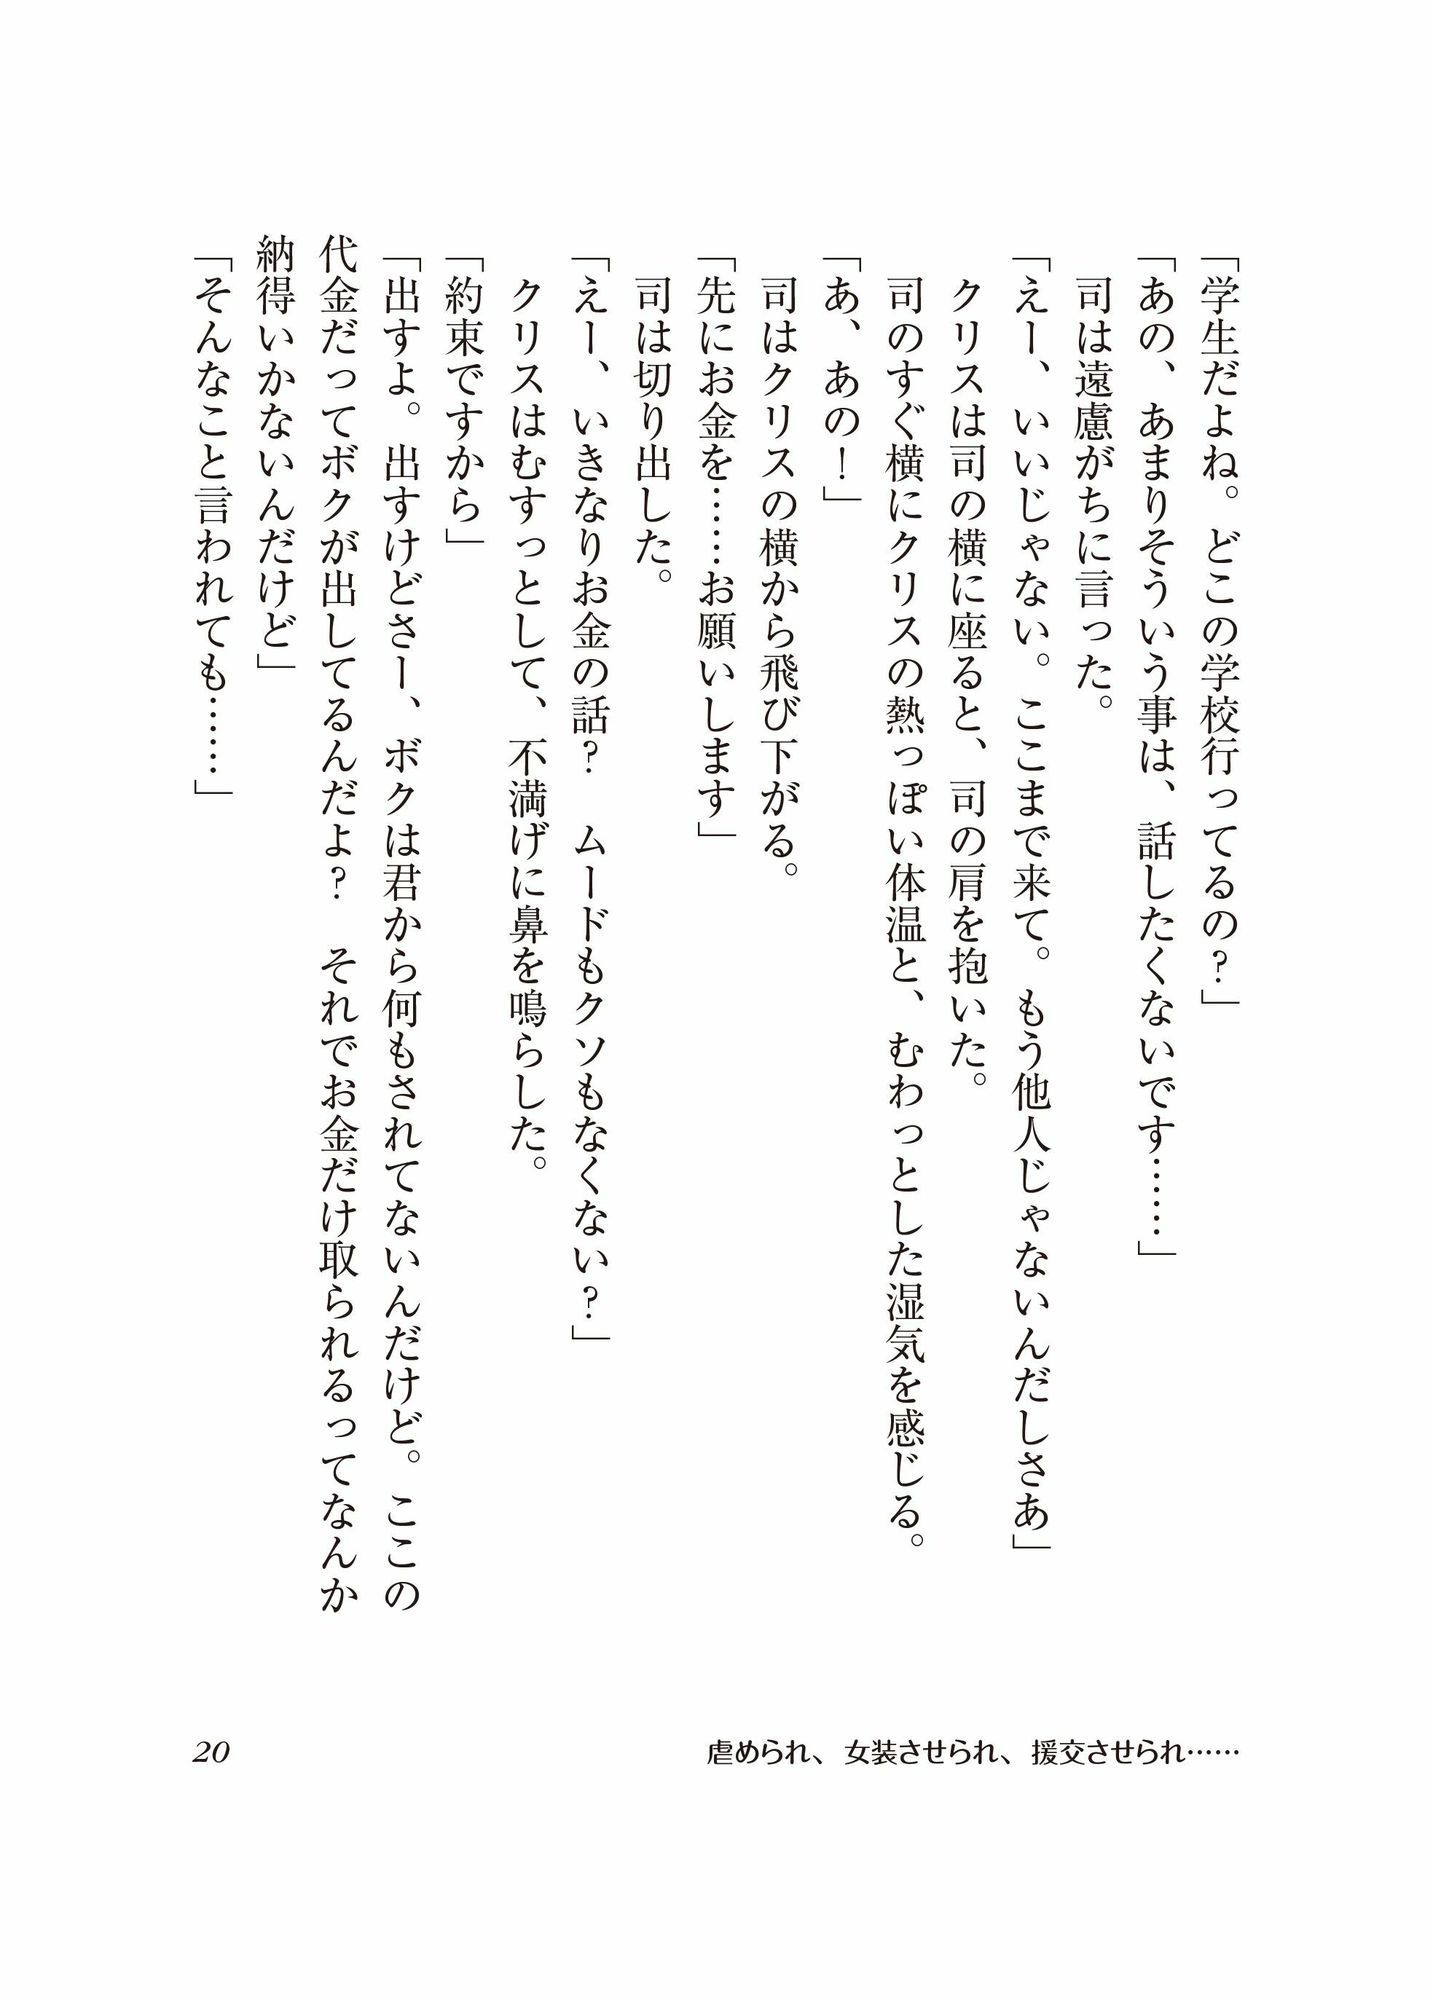 「学生だよね。どこの学校行ってるの？」
「あの、あまりそういう事は、話したくないです……」
　司は遠慮がちに言った。
「えー、いいじゃない。ここまで来て。もう他人じゃないんだしさあ」
　クリスは司の横に座ると、司の肩を抱いた。
　司のすぐ横にクリスの熱っぽい体温と、むわっとした湿気を感じる。
「あ、あの！」
　司はクリスの横から飛び下がる。
「先にお金を……お願いします」
　司は切り出した。
「えー、いきなりお金の話？　ムードもクソもなくない？」
　クリスはむすっとして、不満げに鼻を鳴らした。
「約束ですから」
「出すよ。出すけどさー、ボクは君から何もされてないんだけど。ここの
代金だってボクが出してるんだよ？　それでお金だけ取られるってなんか
納得いかないんだけど」
「そんなこと言われても……」
虐められ、女装させられ、援交させられ……
20